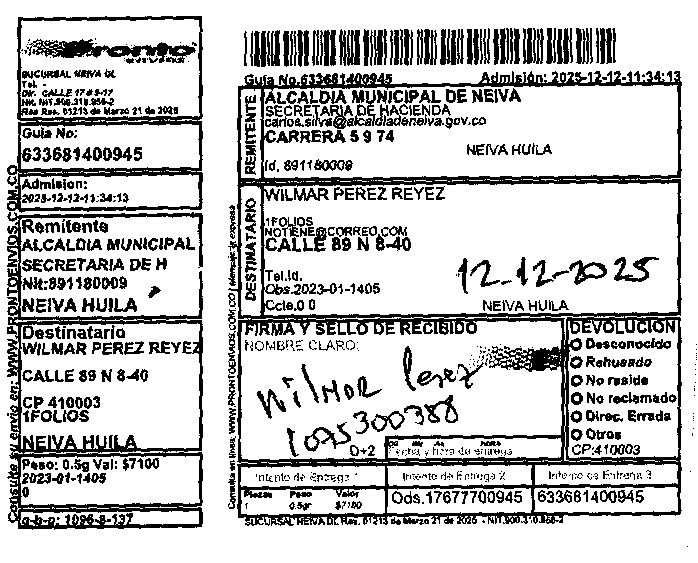 Pronto
envios
SUCURSAL NEIVA DL
Tel. -
Dir. CALLE 17 # 5-17
Res Res. 01213 de Marzo 21 de 2025
Guia No:
633681400945
Admision:
2025-12-12-11:34:13
Remitente
ALCALDIA MUNICIPAL
SECRETARIA DE H
Nit:891180009
NEIVA HUILA
Destinatario
WILMAR PEREZ REYEZ
CALLE 89 N 8-40
CP 410003
1FOLIOS
NEIVA HUILA
Peso: 0.5g Val: $7100
2023-01-1405
0
g-b-p: 1096-8-137
Consulte su envio en: WWW.PRONTOENVIOS.COM.CO
Guia No.633681400945 Admisión: 2025-12-12-11:34:13
REMITENTE
ALCALDIA MUNICIPAL DE NEIVA
SECRETARIA DE HACIENDA
carlos.silva@alcaldianeiva.gov.co
CARRERA 5 9 74
NEIVA HUILA
Id. 891180009
DESTINATARIO
WILMAR PEREZ REYEZ
1FOLIOS
NOTIENE@CORREO.COM
CALLE 89 N 8-40
12-12-2025
Tel.Id.
Obs.2023-01-1405
Ccte.0 0
NEIVA HUILA
FIRMA Y SELLO DE RECIBIDO
NOMBRE CLARO:
Wilmar Perez
1075300388
D+2
Fecha y hora de entrega
DEVOLUCION
Desconocido
Rehusado
No reside
No reclamado
Direc. Errada
Otros
CP:410003
Intento de Entrega 1 Intento de Entrega 2 Intento de Entrega 3
Piezas Peso Valor
1 0.5gr $7100
Ods.17677700945 633681400945
SUCURSAL NEIVA DL Res. 01213 de Marzo 21 de 2025 - NIT.900.310.856-2
Consulta en linea: WWW.PRONTOENVIOS.COM.CO | Mensajeria expresa